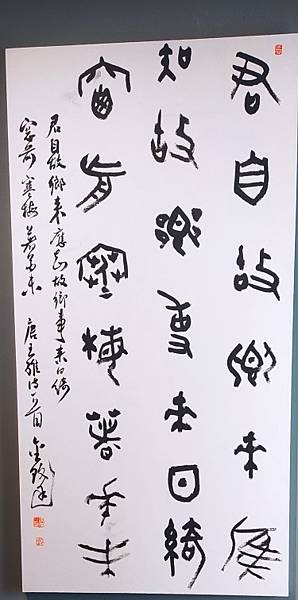 君自故鄉來應
知故鄉事來日綺
窗前寒梅著花未
君自故鄉來應知故鄉事來日綺
窗前寒梅著花未 唐王維詩一首